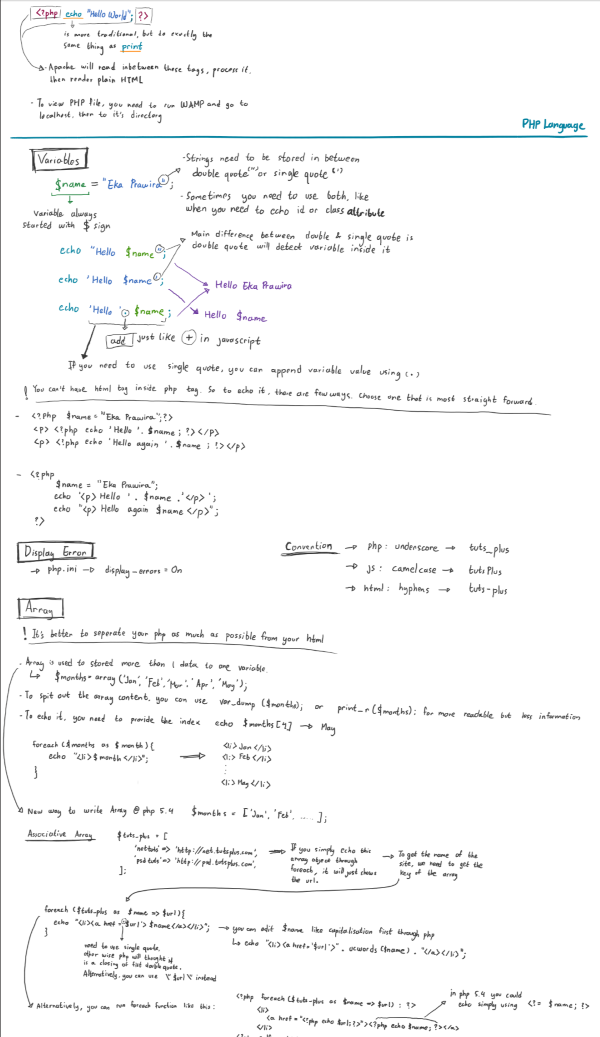 <?php echo "Hello World"; ?>
is more traditional, but do exactly the
same thing as print
Apache will read inbetween these tags, process it.
then render plain HTML
- To view PHP file, you need to run WAMP and go to
localhost, then to it's directory
PHP Language
Variables
$name = "Eka Prawira";
Variable always
started with $ sign
- Strings need to be stored in between
double quote (") or single quote (')
- Sometimes you need to use both, like
when you need to echo id or class attribute
Main difference between double & single quote is
double quote will detect variable inside it
echo "Hello $name";
echo 'Hello $name';
echo 'Hello '. $name;
Hello Eka Prawira
Hello $name
add just like + in javascript
If you need to use single quote, you can append variable value using (.)
! You can't have html tag inside php tag. So to echo it, there are few ways. Choose one that is most straight forward.
- <?php $name = "Eka Prawira"; ?>
<p> <?php echo 'Hello '. $name; ?> </p>
<p> <?php echo 'Hello again '. $name; ?> </p>
- <?php
$name = "Eka Prawira";
echo '<p> Hello ' . $name .'</p>';
echo "<p> Hello again $name </p>";
?>
Display Error
→ php.ini → display-errors = On
Convention → php: underscore → tuts_plus
→ js: camelcase → tutsPlus
→ html: hyphens → tuts-plus
Array
! It's better to seperate your php as much as possible from your html
- Array is used to stored more than 1 data to one variable.
↳ $months = array ('Jan', 'Feb', 'Mar', 'Apr', 'May');
- To spit out the array content, you can use var_dump ($months); or print_r ($months); for more readable but less information
- To echo it, you need to provide the index echo $months[4] → May
foreach ($months as $month) {
echo "<li> $month </li>";
}
<li> Jan </li>
<li> Feb </li>
<li> May </li>
New way to write Array @ php 5.4 $months = ['Jan', 'Feb', ..... ];
Associative Array
$tuts_plus = [
'nettuts' => 'http://net.tutsplus.com',
'psdtuts' => 'http://psd.tutsplus.com',
];
If you simply echo this
array object through
foreach, it will just shows
the url.
To get the name of the
site, we need to get the
key of the array
foreach ($tuts-plus as $name => $url) {
echo "<li><a href='$url'> $name</a></li>";
}
need to use single quote,
other wise php will thought it
is a closing of first double quote.
Alternatively, you can use \"$url\" instead
→ you can edit $name like capitalisation first through php
↳ echo "<li><a href='$url'>" . ucwords ($name) . "</a></li>";
Alternatively, you can run foreach function like this:
<?php foreach ($tuts-plus as $name => $url) : ?>
<li>
<a href="<?php echo $url; ?>"><?php echo $name; ?></a>
</li>
in php 5.4 you could
echo simply using <?= $name; ?>